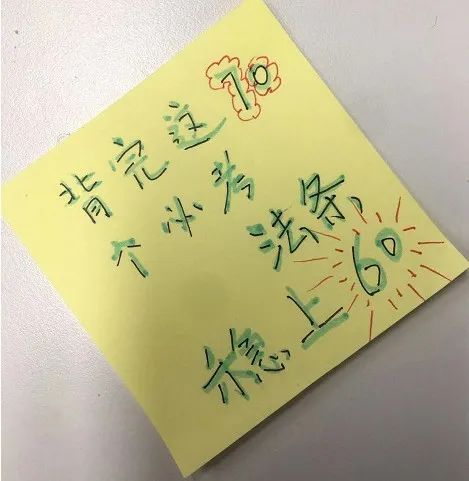 背完这70
个必考
法条,
稳上60